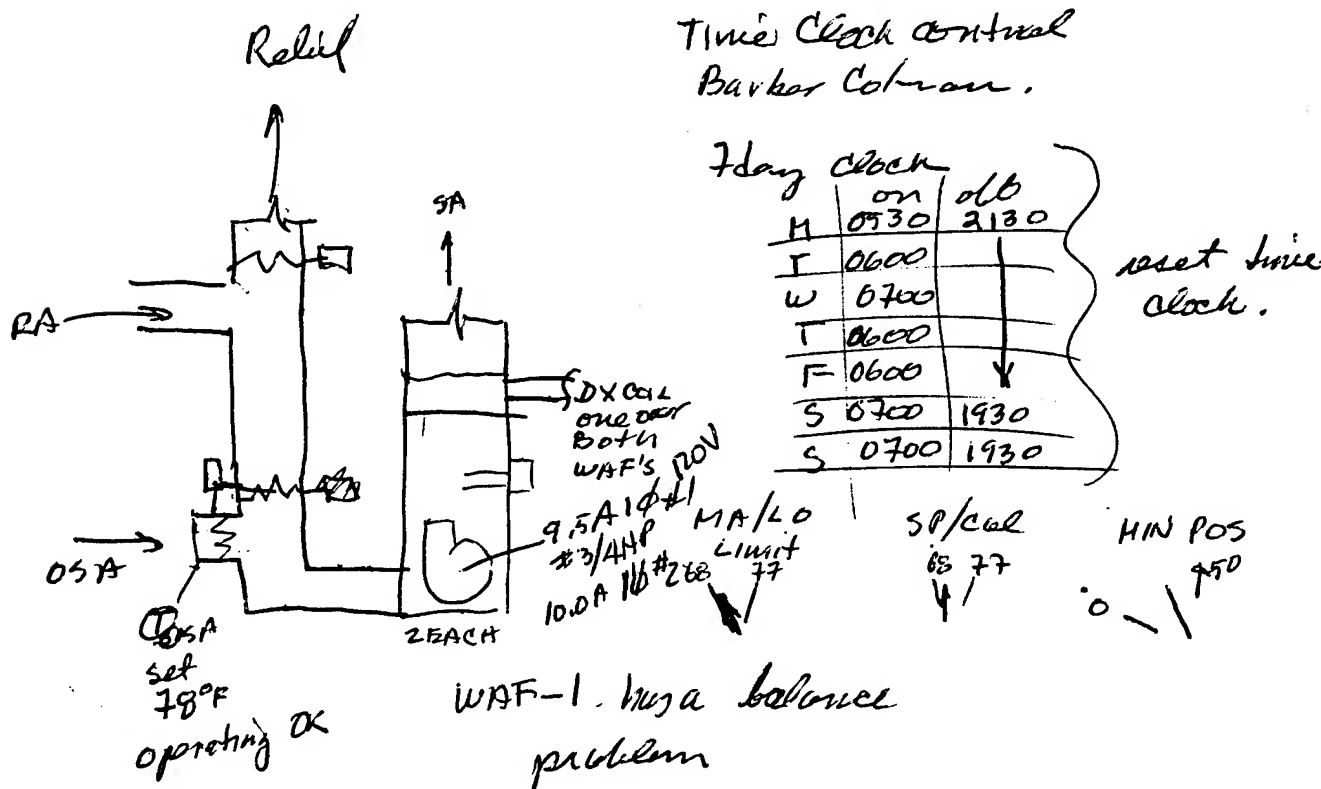 Relief
Time Clock control
Barber Colman.
7 day clock
on off
M 0530 2130
T 0600
W 0700
T 0600
F 0600
S 0700 1930
S 0700 1930
reset time
clock.
SA
RA
DX COIL
one over
Both
WAF's
OSA
9.5A 1φ #1 120V
#3/4HP
10.0A 1φ #2
2 EACH
MA/LO
Limit
68 77
SP/Cool
68 77
MIN POS
0 50
OSA
set
78°F
operating OK
WAF-1. has a balance
problem